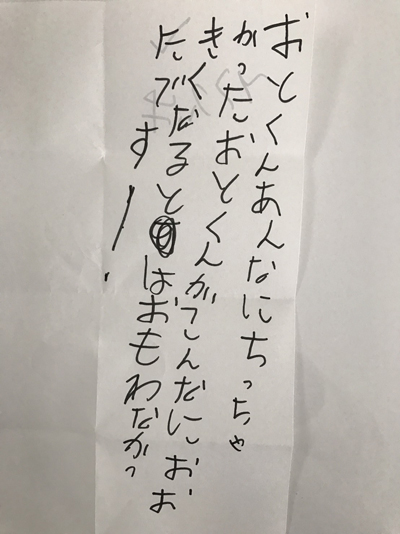 おとくんあんなにちっちゃ
かったおとくんがこんなにおお
きくなるとはおもわなかっ
たです!